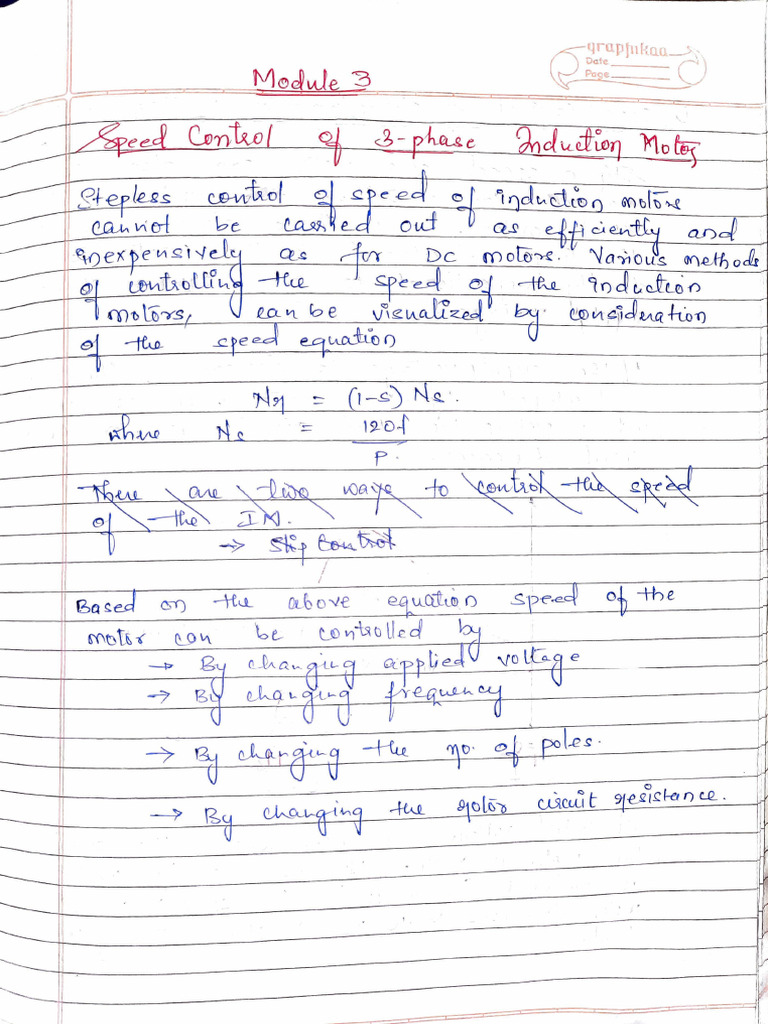 grapfukaa
Date
Page
Module 3
Speed Control of 3-phase Induction Motor
Stepless control of speed of induction motors
cannot be carried out as efficiently and
inexpensively as for DC motors. Various methods
of controlling the speed of the induction
motors, can be visualized by consideration
of the speed equation
Nr = (1-s) Ns.
where Ns = 120f
P.
There are two ways to control the speed
of the IM.
→ Slip Control
Based on the above equation speed of the
motor can be controlled by
→ By changing applied voltage
→ By changing frequency
→ By changing the no. of poles.
→ By changing the rotor circuit resistance.